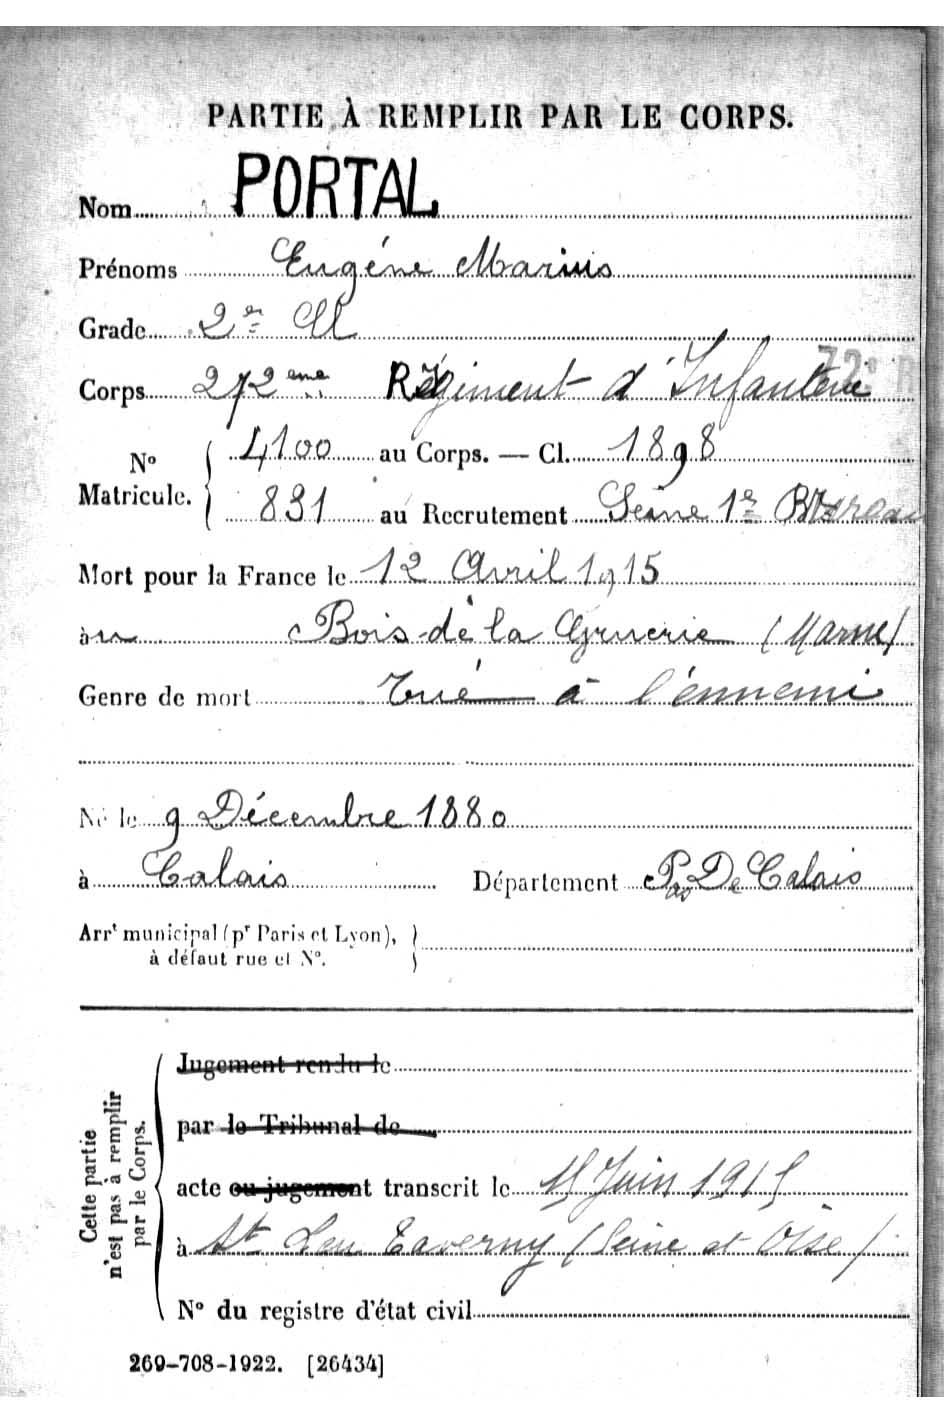 PARTIE À REMPLIR PAR LE CORPS.
Nom PORTAL
Prénoms Eugéne Marius
Grade 2e Cl
Corps 272eme Régiment d'Infanterie
72e R
No Matricule. 4100 au Corps. — Cl. 1898
831 au Recrutement Seine 1er Bureau
Mort pour la France le 12 Avril 1915
à au Bois de la Gruerie (Marne)
Genre de mort tué à l'énnemi
Né le 9 Décembre 1880
à Calais Département Pas De Calais
Arrt municipal (pr Paris et Lyon),
à défaut rue et No.
Cette partie
n'est pas à remplir
par le Corps.
Jugement rendu le
par le Tribunal de
acte ou jugement transcrit le 15 Juin 1915
à St Leu Taverny (Seine et Oise)
No du registre d'état civil
269-708-1922. [26434]